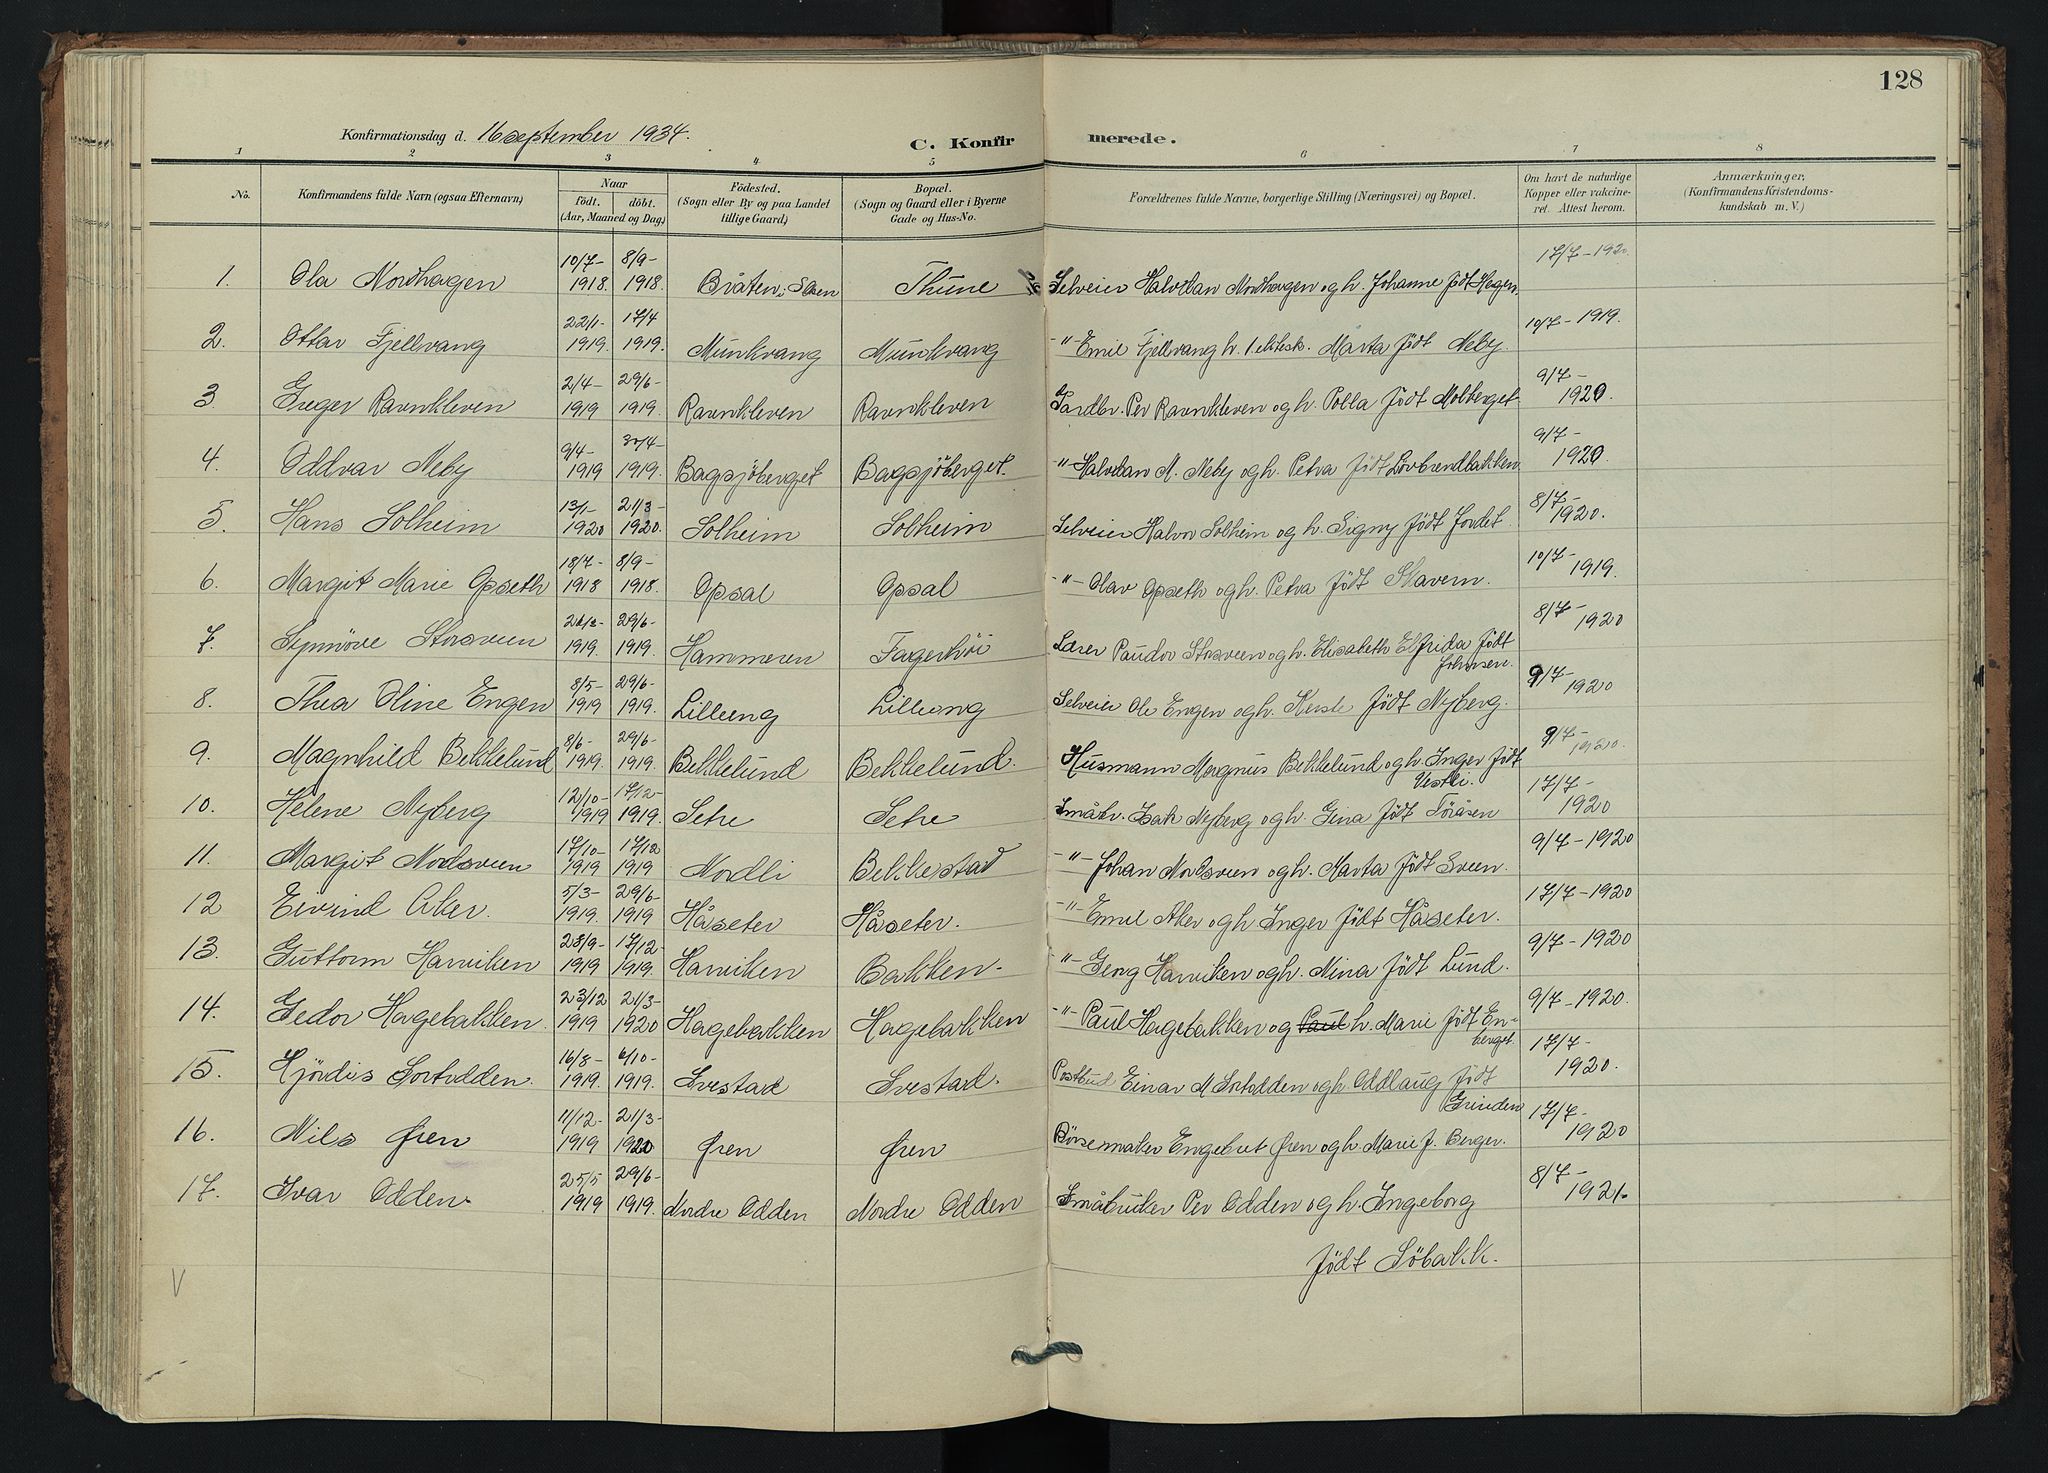 128
Konfirmationsdag d. 16 september 1934.
C. Konfirmerede.
1 2 3 4 5 6 7 8
No.
Konfirmandens fulde Navn (ogsaa Efternavn).
Naar
født. døbt.
(Aar, Maaned og Dag)
Fødested.
(Sogn eller By og paa Landet
tillige Gaard)
Bopæl.
(Sogn og Gaard eller i Byerne
Gade og Hus-No.
Forældrenes fulde Navne, borgerlige Stilling (Næringsvei) og Bopæl.
Om havt de naturlige
Kopper eller vakcine-
ret. Attest herom.
Anmærkninger,
(Konfirmandens Kristendoms-
kundskab m. V.)
1. Ola Nordhagen 10/7- 1918. 8/9- 1918. Bråten i Søen Thune Selveier Halvdan Nordhagen og h. Johanne født Hagen. 17/7-1920
2. Ottar Fjellvang 22/1- 1919. 17/4 1919. Munkvang Munkvang -"- Emil Fjellvang h. 1. ektesk. Marta født Neby. 10/7-1919.
3 Greger Ravnkleven 2/4- 1919 29/6- 1919. Ravnkleven Ravnkleven Gardbr. Per Ravnkleven og h. Polla født Molberget 9/7-1920.
4. Oddvar Neby 9/4- 1919 30/4- 1919. Bagsjöberget Bagsjöberget. -"- Halvdan M. Neby og h. Petra født Lövbrendbakken 9/7-1920.
5. Hans Solheim 13/1- 1920 21/3- 1920. Solheim Solheim Selveier Halvor Solheim og h. Signy født Jordet. 8/7-1920.
6. Margit Marie Opseth 18/7- 1918 8/9- 1918. Opsal Opsal -"- Olav Opseth og h. Petra født Stavern. 10/7-1919.
7. Synnöve Storsveen 1919. 29/6- 1919. Hammeren Fagerhöi Lærer Paudor Storsveen og h. Elisabeth Elfrida født
Johnsen. 8/7-1920
8. Thea Oline Engen 8/5- 1919 29/6- 1919. Lilleeng Lilleeng Selveier Ole Engen og h. Kerste født Nyberg. 9/7-1920
9. Magnhild Bekkelund 8/6- 1919. 29/6- 1919. Bekkelund Bekkelund. Husmann Magnus Bekkelund og h. Inger født
Vestli. 9/7-1920.
10. Helene Nyberg 12/10- 1919 17/12- 1919. Setre Setre Småbr. Isak Nyberg og h. Gina født Töråsen 17/7-1920
11. Margit Nordsveen 17/10- 1919 17/12 1919 Nordli Bekkestad -"- Johan Nordsveen og h. Marta født Sveen. 9/7-1920
12 Eivind Aker. 5/3- 1919. 29/6- 1919 Håseter Håseter. -"- Emil Aker og h Inger født Håseter. 17/7-1920
13. Guttorm Harviken 28/9- 1919 17/12- 1919. Harviken Bakken. -"- Georg Harviken og h. Nina født Lund. 9/7-1920
14. Gedor Hagebakken 23/12 1919 21/3- 1920 Hagebakken Hagebakken -"- Paul Hagebakken og Paul h. Marie født En-
berget. 9/7-1920.
15. Hjördis Sortodden. 16/8- 1919. 6/10- 1919. Svestad Svestad. Postbud Einar M Sortodden og h. Oddlaug født
Grinden 17/7-1920.
16. Nils Øren 11/12- 1919 21/3- 1920 Øren Øren Børsemaker Engebret Øren og h. Marie f. Berger. 17/7-1920
17. Ivar Odden. 25/5 1919 29/6- 1919. Nordre Odden Nordre Odden Småbruker Per Odden og h. Ingeborg
født Söbakk. 8/7-1921.
V